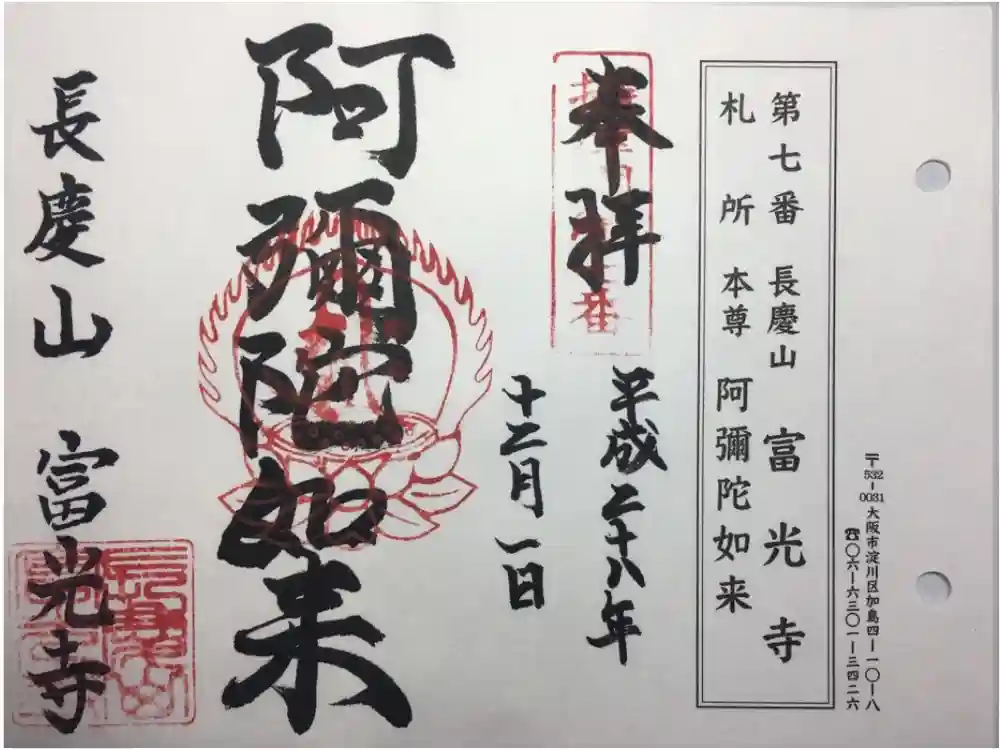 〒532-0031大阪市淀川区加島四ー一〇ー八
☎〇六ー六三〇一ー三四二六
第七番 長慶山 富光寺
札所 本尊 阿彌陀如来
奉拝
平成二十八年
十二月一日
阿彌陀如来
長慶山 富光寺